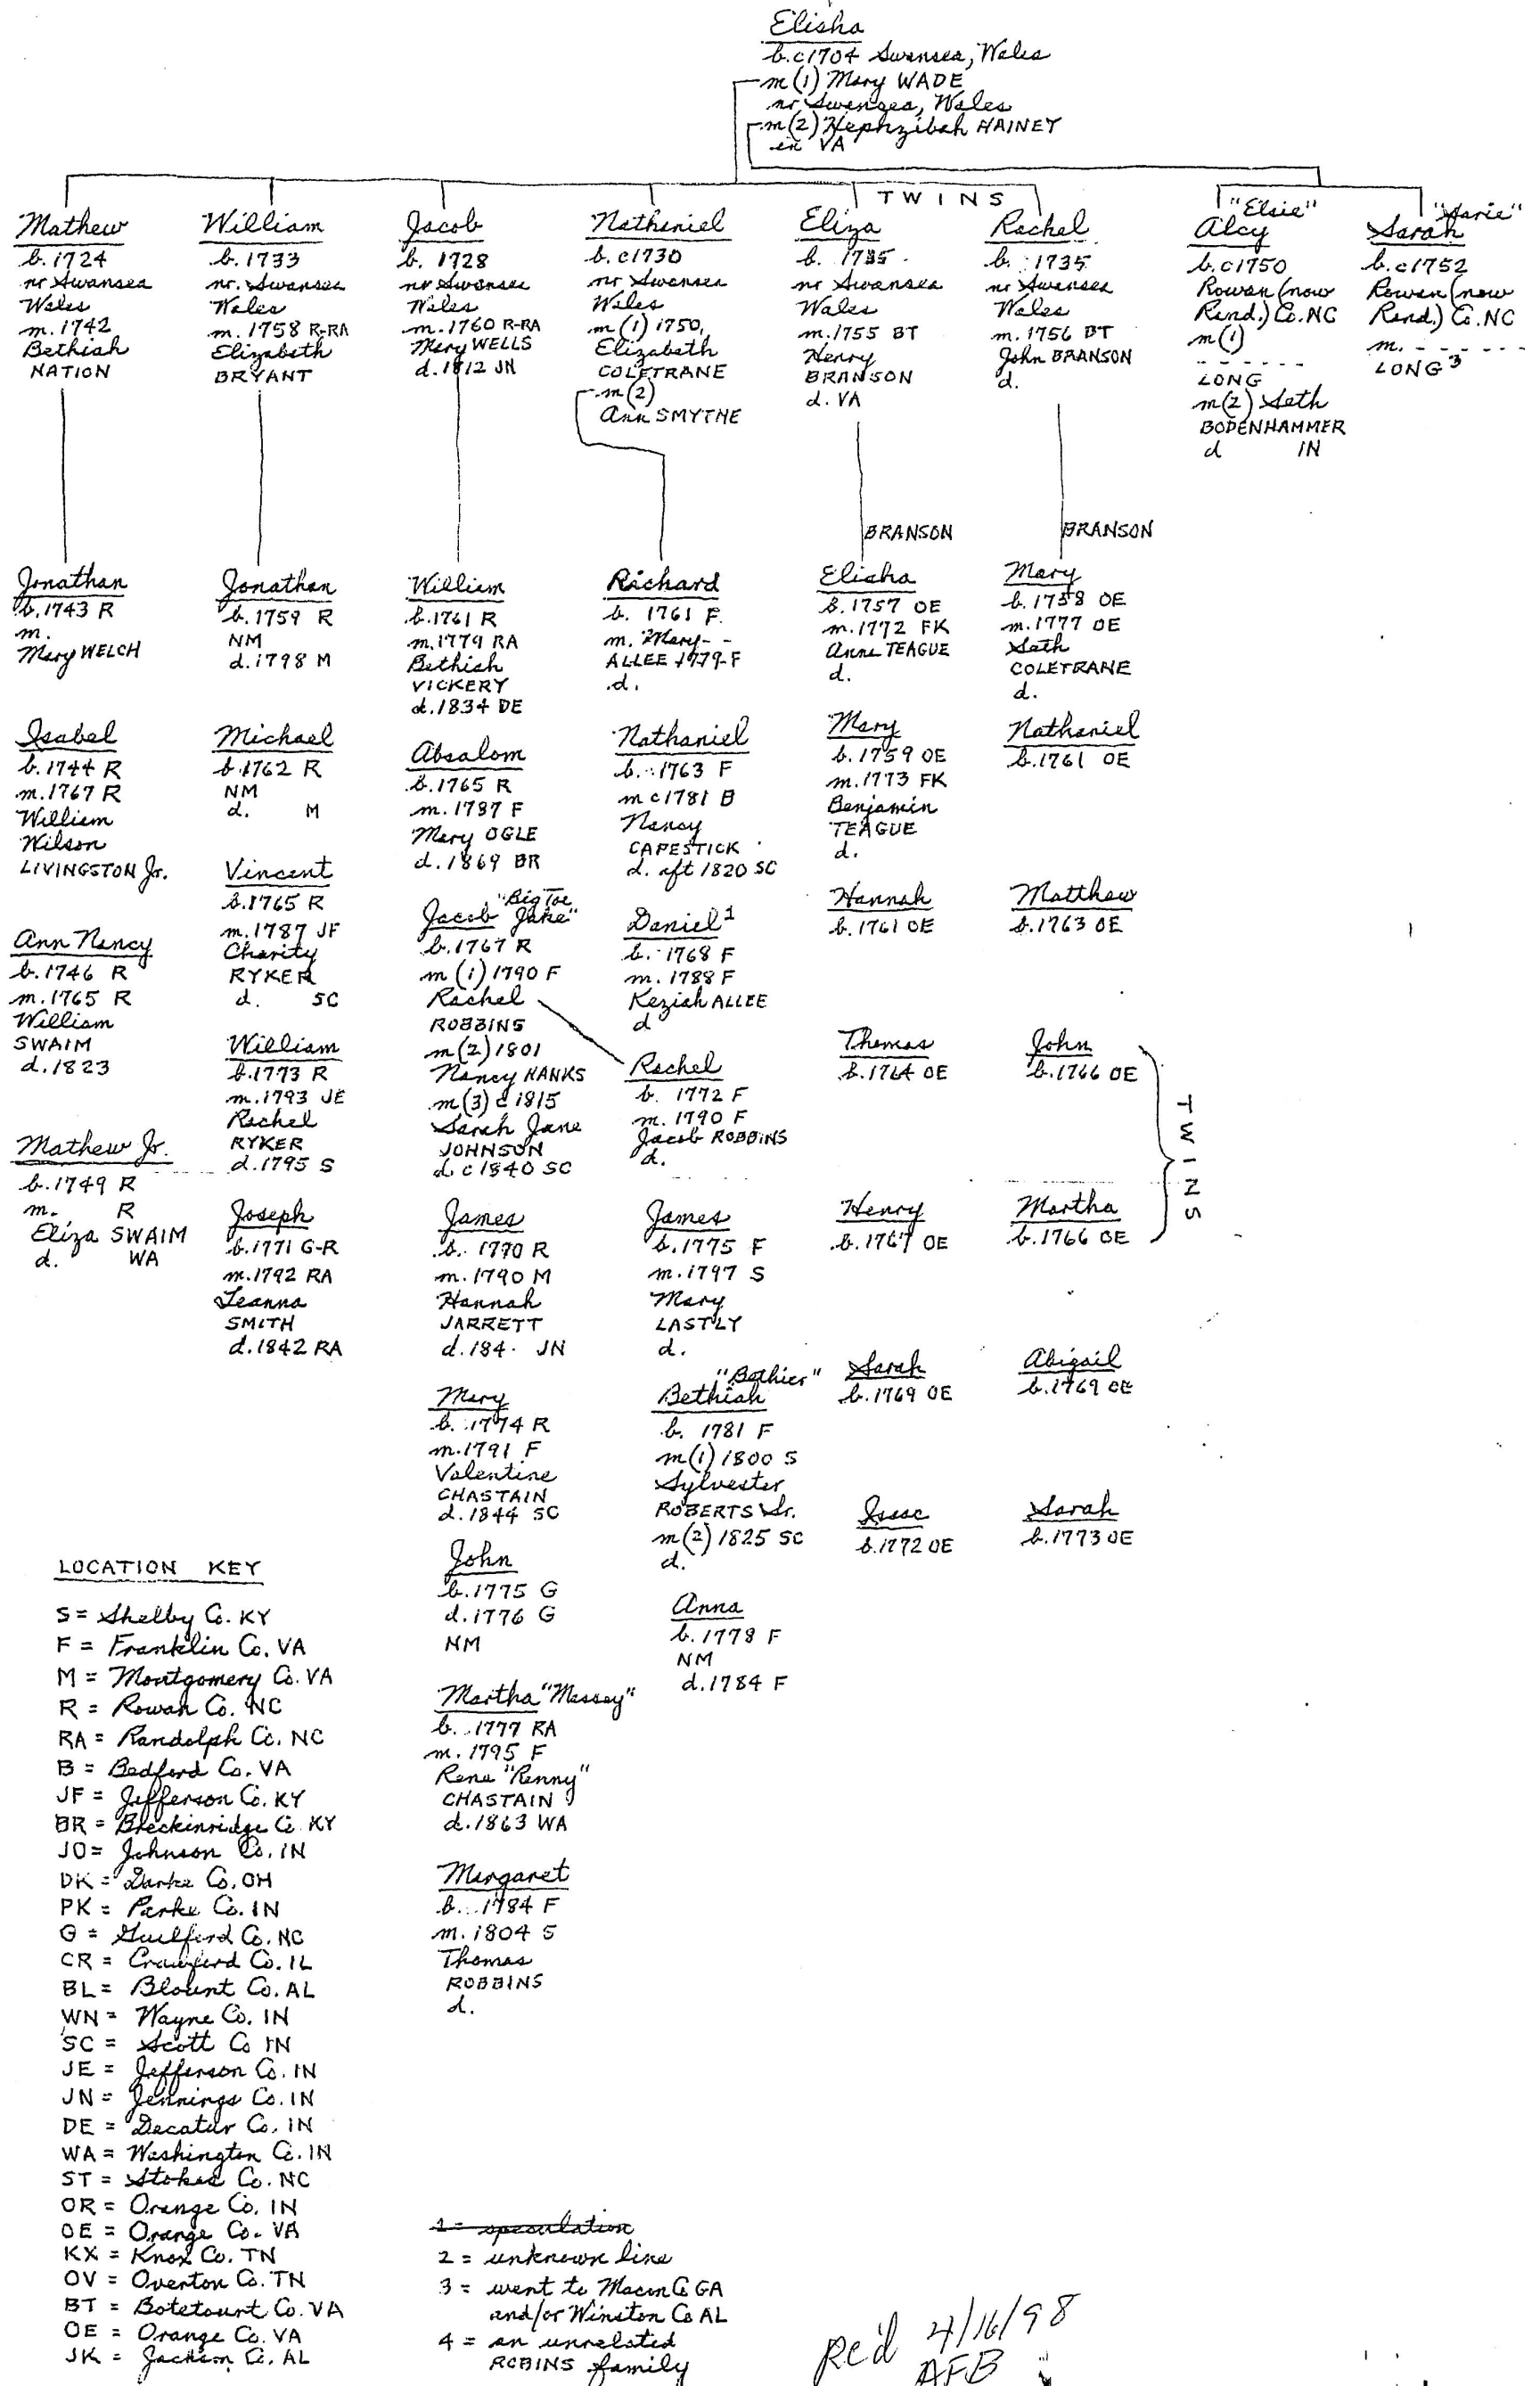 Elisha
b.c1704 Swansea, Wales
m(1) Mary WADE
nr Swansea, Wales
m(2) Hephzibah HAINEY
in VA
TWINS
Mathew
b. 1724
nr Swansea
Wales
m. 1742
Bethiah
NATION
William
b. 1733
nr. Swansea
Wales
m. 1758 R-RA
Elizabeth
BRYANT
Jacob
b. 1728
nr Swansea
Wales
m. 1760 R-RA
Mary WELLS
d. 1812 JN
Nathaniel
b. c1730
nr Swansea
Wales
m(1) 1750,
Elizabeth
COLETRANE
m(2)
Ann SMYTHE
Eliza
b. 1735
nr Swansea
Wales
m. 1755 BT
Henry
BRANSON
d. VA
Rachel
b. 1735
nr Swansea
Wales
m. 1756 BT
John BRANSON
d.
"Elsie"
Alcy
b. c1750
Rowan (now
Rand.) Co. NC
m(1)
- - - - -
LONG
m(2) Seth
BODENHAMMER
d IN
"Sarie"
Sarah
b. c1752
Rowan (now
Rand.) Co. NC
m. - - - - -
LONG 3
Jonathan
b. 1743 R
m.
Mary WELCH
Isabel
b. 1744 R
m. 1767 R
William
Wilson
LIVINGSTON Jr.
Ann Nancy
b. 1746 R
m. 1765 R
William
SWAIM
d. 1823
Mathew Jr.
b. 1749 R
m. R
Eliza SWAIM
d. WA
Jonathan
b. 1759 R
NM
d. 1798 M
Michael
b. 1762 R
NM
d. M
Vincent
b. 1765 R
m. 1787 JF
Charity
RYKER
d. SC
William
b. 1773 R
m. 1793 JE
Rachel
RYKER
d. 1795 S
Joseph
b. 1771 G-R
m. 1792 RA
Leanna
SMITH
d. 1842 RA
William
b. 1761 R
m. 1779 RA
Bethiah
VICKERY
d. 1834 DE
Absalom
b. 1765 R
m. 1787 F
Mary OGLE
d. 1869 BR
"Big Toe
Jacob Jake"
b. 1767 R
m (1) 1790 F
Rachel
ROBBINS
m(2) 1801
Nancy HANKS
m(3) c1815
Sarah Jane
JOHNSON
d. c1840 SC
James
b. 1770 R
m. 1790 M
Hannah
JARRETT
d. 184 JN
Mary
b. 1774 R
m. 1791 F
Valentine
CHASTAIN
d. 1844 SC
John
b. 1775 G
d. 1776 G
NM
Martha "Massey"
b. 1777 RA
m. 1795 F
Rene "Renny"
CHASTAIN
d. 1863 WA
Margaret
b. 1784 F
m. 1804 S
Thomas
ROBBINS
d.
Richard
b. 1761 F.
m. Mary - -
ALLEE 1779-F
d.
Nathaniel
b. 1763 F
m c1781 B
Nancy
CAPESTICK
d. aft 1820 SC
Daniel 1
b. 1768 F
m. 1788 F
Keziah ALLEE
d
Rachel
b. 1772 F
m. 1790 F
Jacob ROBBINS
d.
James
b. 1775 F
m. 1797 S
Mary
LASTLY
d.
"Bethier"
Bethiah
b. 1781 F
m(1) 1800 S
Sylvester
ROBERTS Sr.
m(2) 1825 SC
d.
Anna
b. 1778 F
NM
d. 1784 F
BRANSON
Elisha
b. 1757 OE
m. 1772 FK
Anne TEAGUE
d.
Mary
b. 1759 OE
m. 1773 FK
Benjamin
TEAGUE
d.
Hannah
b. 1761 OE
Thomas
b. 1764 OE
Henry
b. 1767 OE
Sarah
b. 1769 OE
Isaac
b. 1772 OE
BRANSON
Mary
b. 1758 OE
m. 1777 OE
Seth
COLETRANE
d.
Nathaniel
b. 1761 OE
Matthew
b. 1763 OE
John
b. 1766 OE
TWINS
Martha
b. 1766 OE
Abigail
b. 1769 OE
Sarah
b. 1773 OE
LOCATION KEY
S = Shelby Co. KY
F = Franklin Co. VA
M = Montgomery Co. VA
R = Rowan Co. NC
RA = Randolph Co. NC
B = Bedford Co. VA
JF = Jefferson Co. KY
BR = Breckinridge Co KY
JO = Johnson Co. IN
DK = Darke Co. OH
PK = Parke Co. IN
G = Guilford Co. NC
CR = Crawford Co. IL
BL = Blount Co. AL
WN = Wayne Co. IN
SC = Scott Co IN
JE = Jefferson Co. IN
JN = Jennings Co. IN
DE = Decatur Co. IN
WA = Washington Co. IN
ST = Stokes Co. NC
OR = Orange Co. IN
OE = Orange Co. VA
KX = Knox Co. TN
OV = Overton Co. TN
BT = Botetourt Co. VA
OE = Orange Co. VA
JK = Jackson Co. AL
1 = speculation
2 = unknown line
3 = went to Macon Co GA
and/or Winston Co AL
4 = an unrelated
ROBINS family
Rec'd 4/16/98
AFB